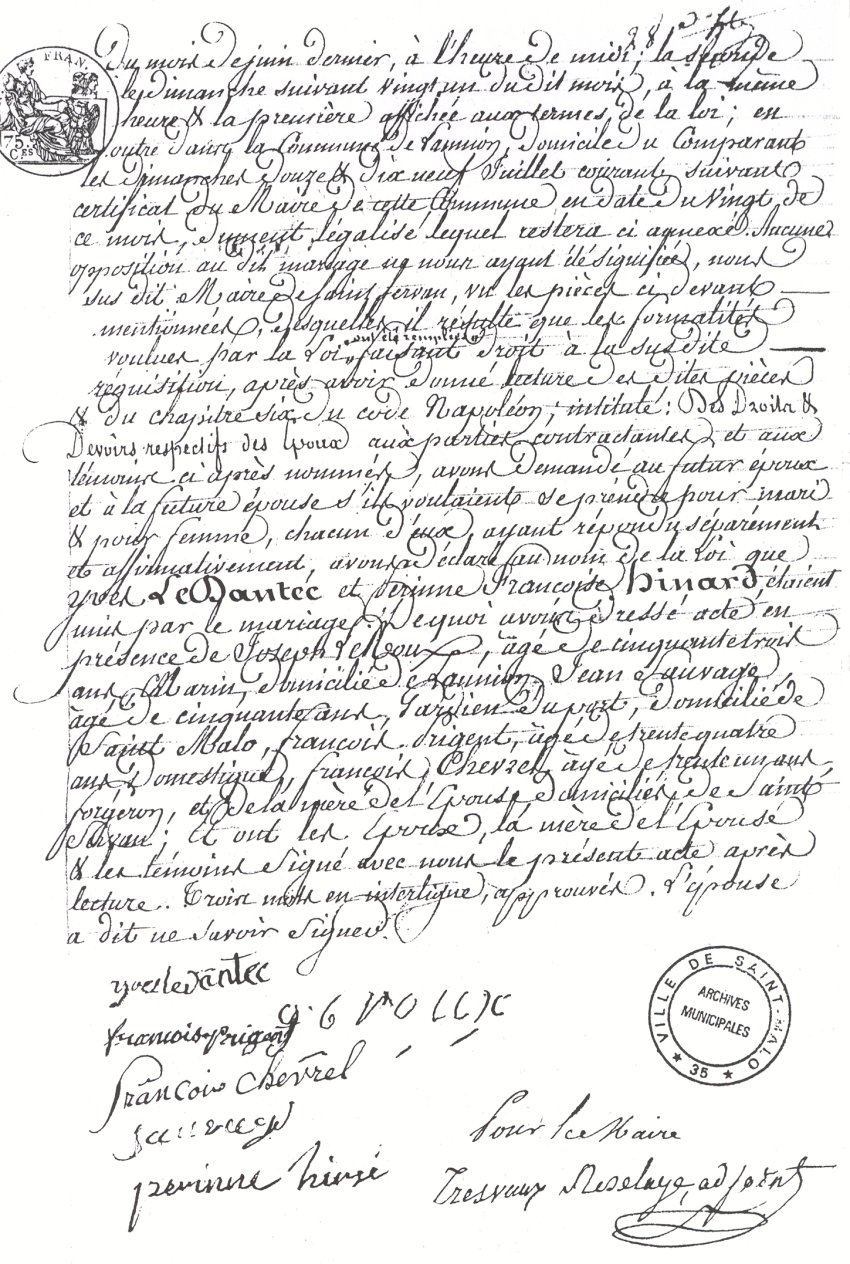 28 d.
FRAN.
75 CES
Du mois de juin dernier, à l'heure de midi; la seconde
le dimanche suivant vingt un du dit mois, à la même
heure & la première affichée aux termes de la loi; en
outre dans la Commune de Lannion, domicile du Comparant
les dimanches douze & dix neuf Juillet courant, suivant
certificat du Maire de cette Commune en date du vingt de
ce mois, dument légalisé lequel restera ci annexé. Aucune
opposition au dit mariage ne nous ayant été signifiée, nous
sus dit Maire de saint servan, vu les pièces ci devant
mentionnées, desquelles il résulte que les formalités
voulues par la Loi ont été remplies, faisant droit à la susdite
réquisition, après avoir donné lecture des dites pièces
& du chapitre six du code Napoléon, intitulé: Des Droits &
Devoirs respectifs des époux aux parties contractantes, et aux
témoins ci après nommés, avons demandé au futur époux
et à la future épouse s'ils voulaient se prendre pour mari
& pour femme, chacun d'eux, ayant répondu séparément
et affirmativement, avons déclaré au nom de la Loi que
yves Le Dantec et perinne Françoise hinard étaient
unis par le mariage. De quoi avons dressé acte en
présence de Joseph Le Roux, âgé de cinquante trois
ans, Marin, domicilié de Lannion, Jean Sauvage,
âgé de cinquante ans, Gardien du port, domicilié de
Saint Malo, françois prigent, âgé de trente quatre
ans, Domestique, françois Chevrel, âgé de trente un ans,
forgeron, et de la mère de l'Epouse domiciliés de Saint
Servan; Et ont les Epoux, la mère de l'Epouse
& les témoins Signé avec nous le présent acte après
lecture. Trois mots en interligne, approuvés. L'épouse
a dit ne savoir signer.
yves le dantec
francois prigent
françois chevrel
sauvage
perinne
Pour Le Maire
Tresvaux adjoint
VILLE DE SAINT-MALO
ARCHIVES
MUNICIPALES
* 35 *